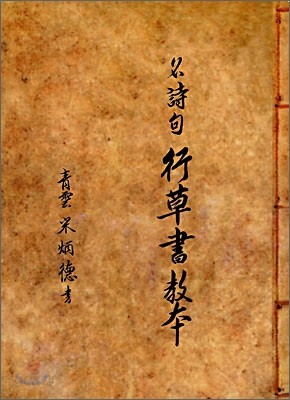 名詩句 行草書教本
青雲 宋炳德書